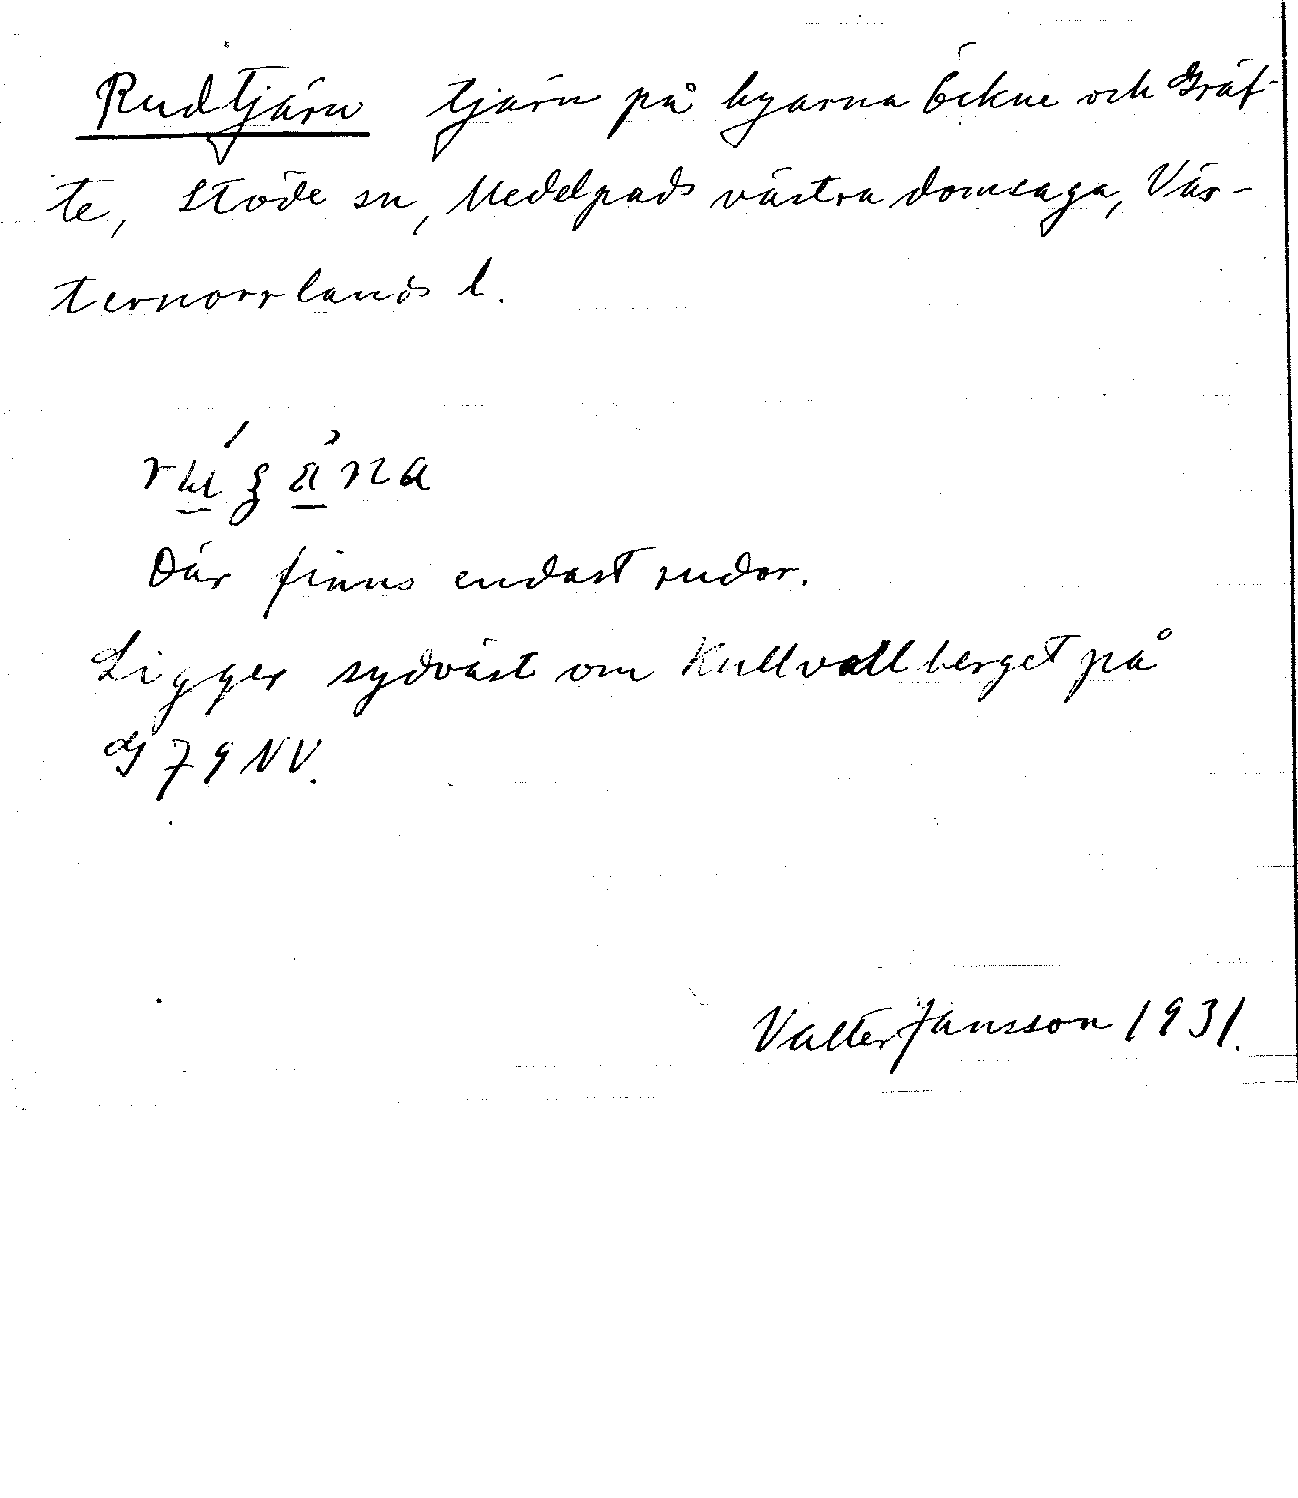 Rudtjärn tjärn på byarna Ökne och Gräf-
te, Stöde sn, Medelpads västra domsaga, Väs-
ternorrlands l.
Där finns endast rudor.
Ligger sydväst om Kullvallberget på
79 NV.
Valter Jansson 1931.